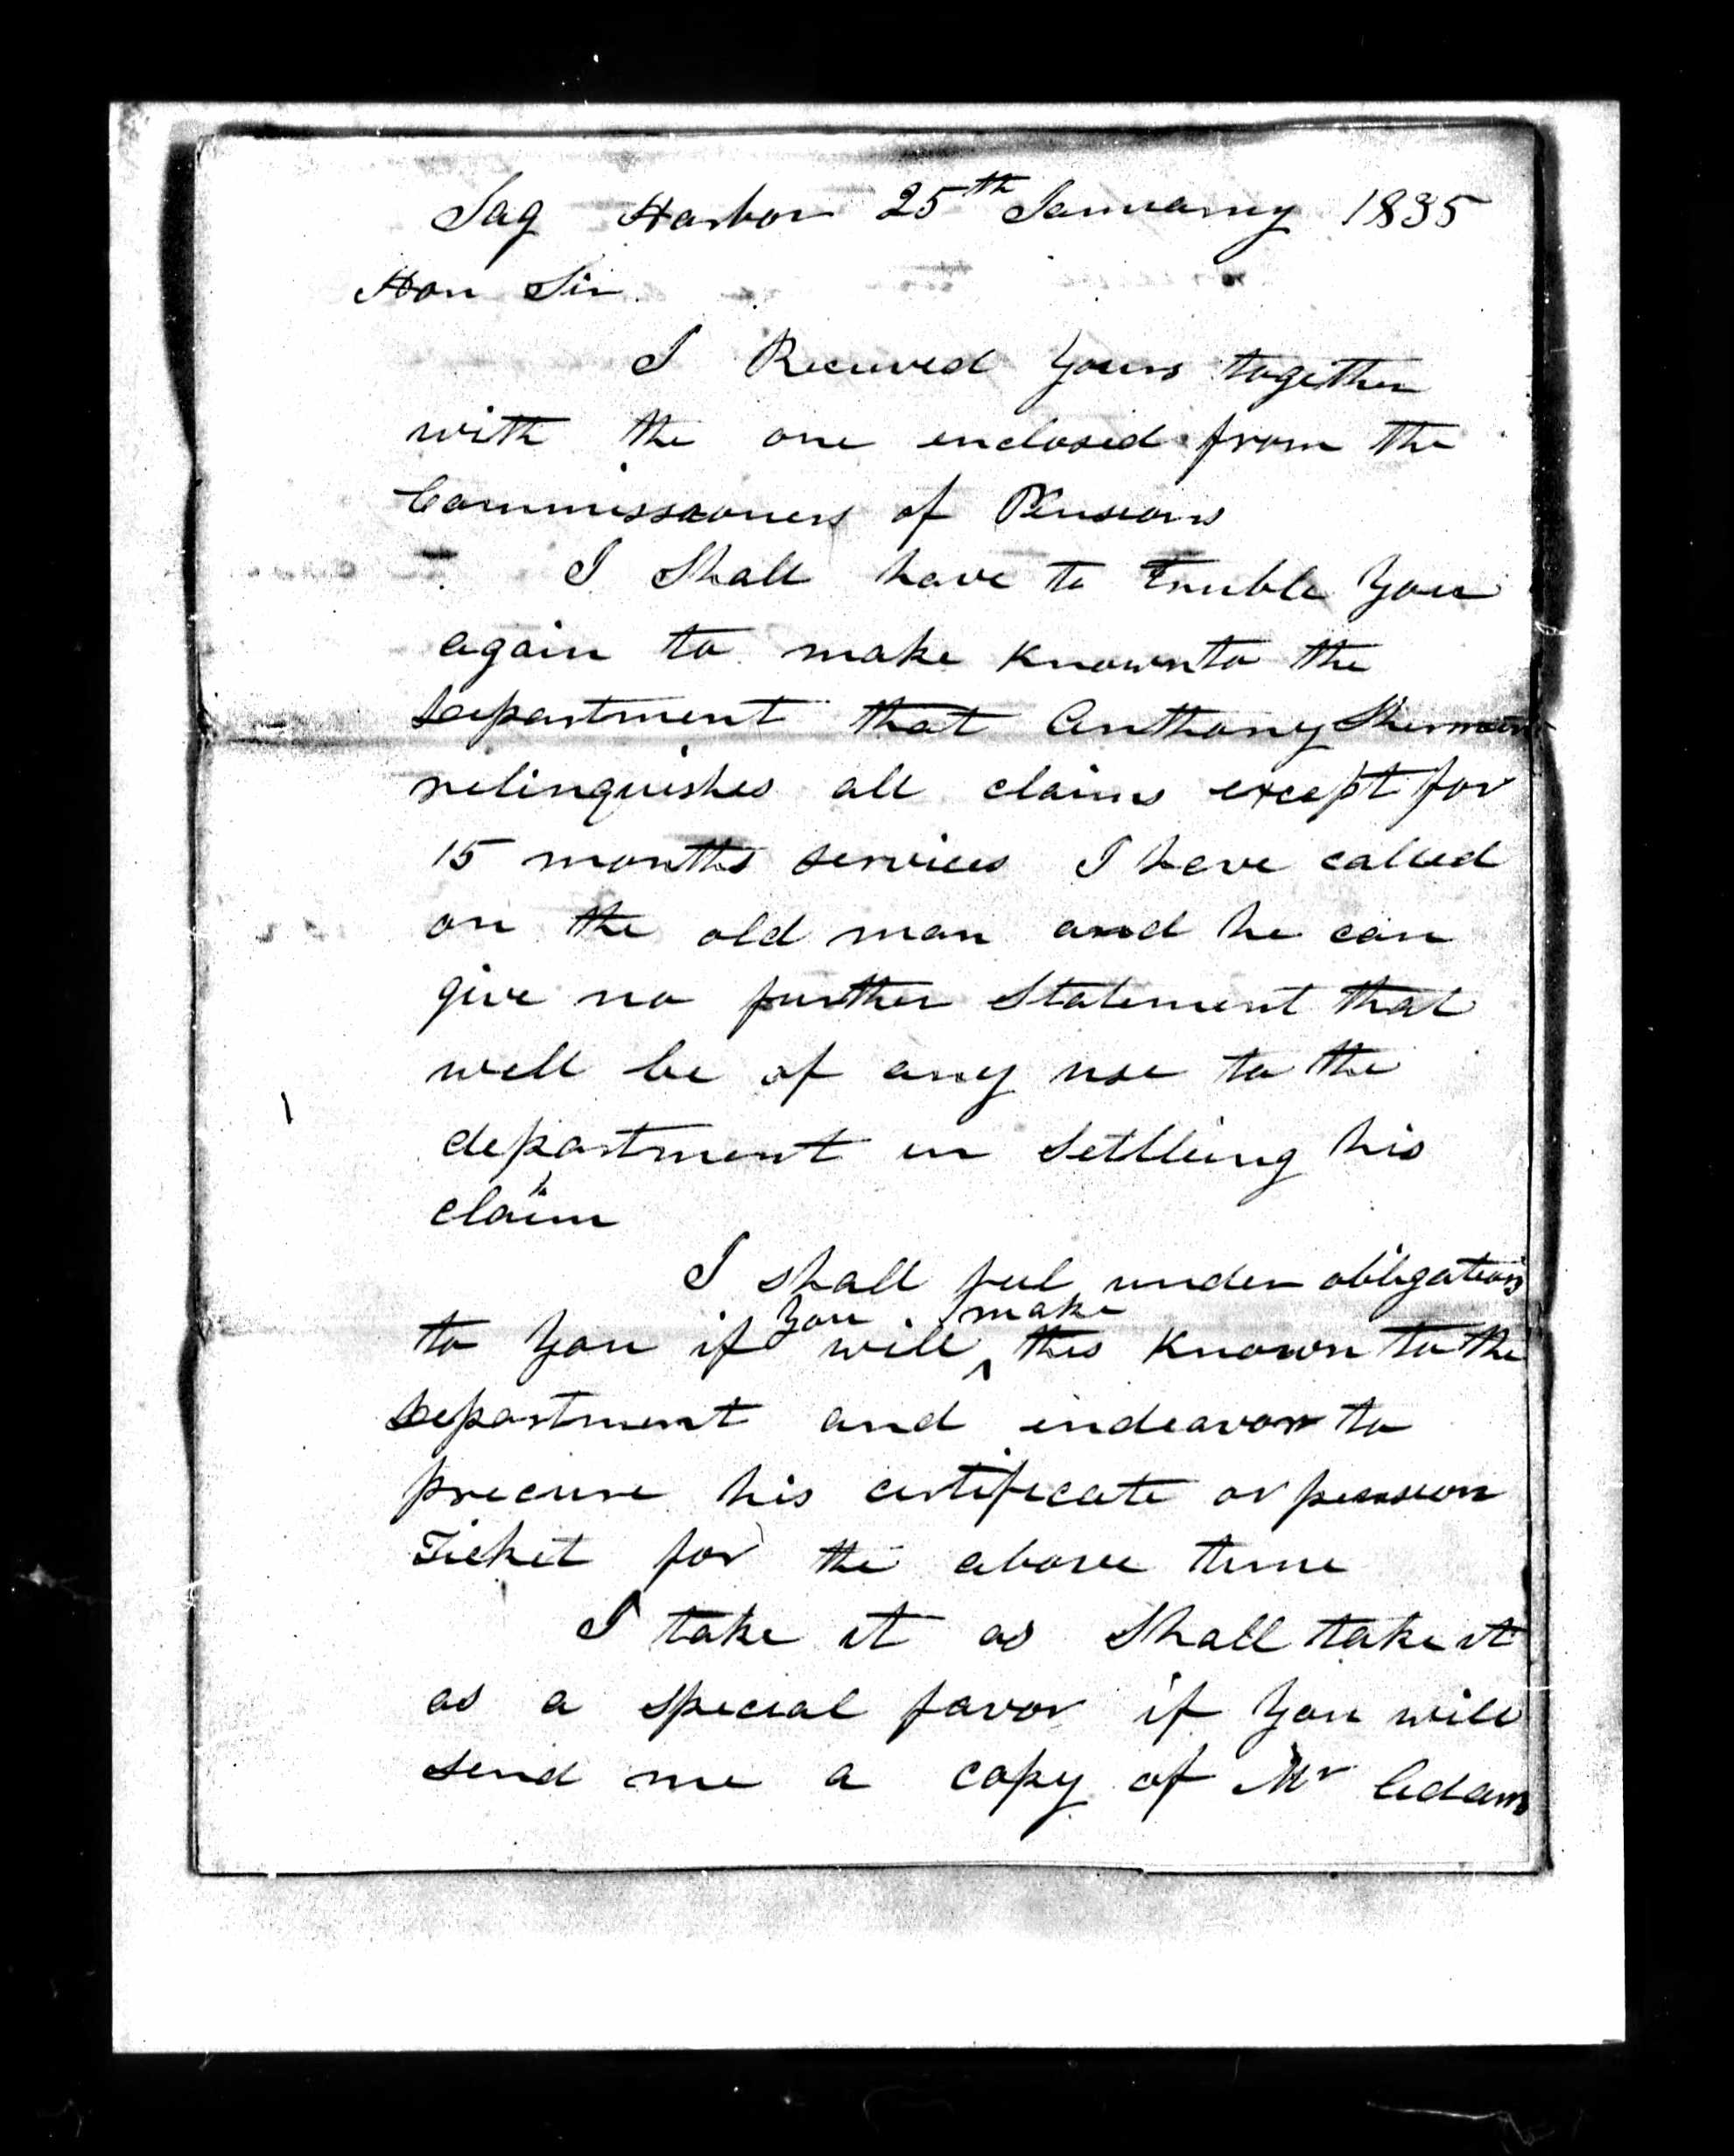 Sag Harbor 25th January 1835
Hon Sir.
I Received yours together
with the one enclosed from the
Commissioners of Pensions
I Shall have to truble you
again to make known to the
Department that Anthony Sherman
relinquishes all claims except for
15 months services I have called
on the old man and he can
give no further Statement that
will be of any use to the
department in Settleing his
claim
I shall feel under obligations
to you if you will make this known to the
Department and endeavor to
precure his certificate or pension
Ticket for the above time
I take it as Shall take it
as a special favor if you will
send me a copy of Mr Adams